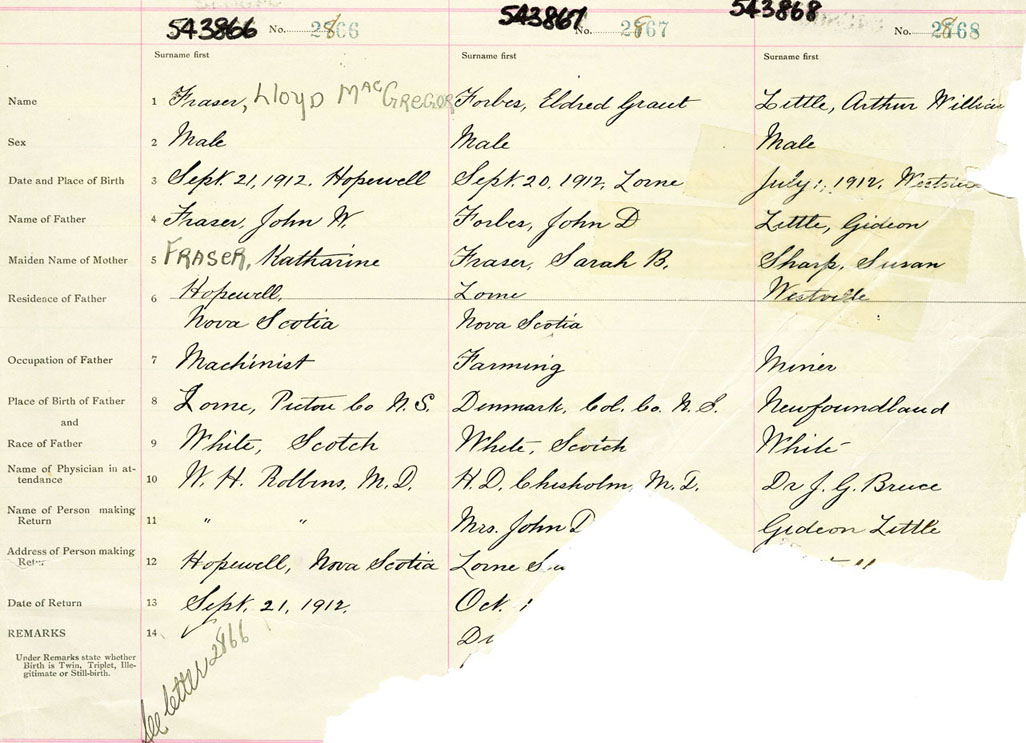 543866 No. 2866 543867 No. 2867 543868 No. 2868
Surname first Surname first Surname first
Name 1 Fraser, Lloyd MacGregor Forbes, Eldred Grant Little, Arthur William
Sex 2 Male Male Male
Date and Place of Birth 3 Sept. 21, 1912. Hopewell Sept. 20, 1912, Lorne July 1, 1912.
Name of Father 4 Fraser, John W. Forbes, John D Little, Gideon
Maiden Name of Mother 5 FRASER, Katharine Fraser, Sarah B. Sharp, Susan
Residence of Father 6 Hopewell, Lorne Westville
Nova Scotia Nova Scotia
Occupation of Father 7 Machinist Farming Miner
Place of Birth of Father 8 Lorne, Pictou Co N.S. Denmark, Col. Co. N.S. Newfoundland
and
Race of Father 9 White, Scotch White, Scotch White
Name of Physician in at-
tendance 10 W. H. Robbins, M.D. H.D. Chisholm, M.D. Dr J. G. Bruce
Name of Person making
Return 11 " " Mrs. John D Gideon Little
Address of Person making
Return 12 Hopewell, Nova Scotia Lorne
Date of Return 13 Sept. 21, 1912. Oct. 1
REMARKS 14
Under Remarks state whether
Birth is Twin, Triplet, Ille-
gitimate or Still-birth.
See letter 2866